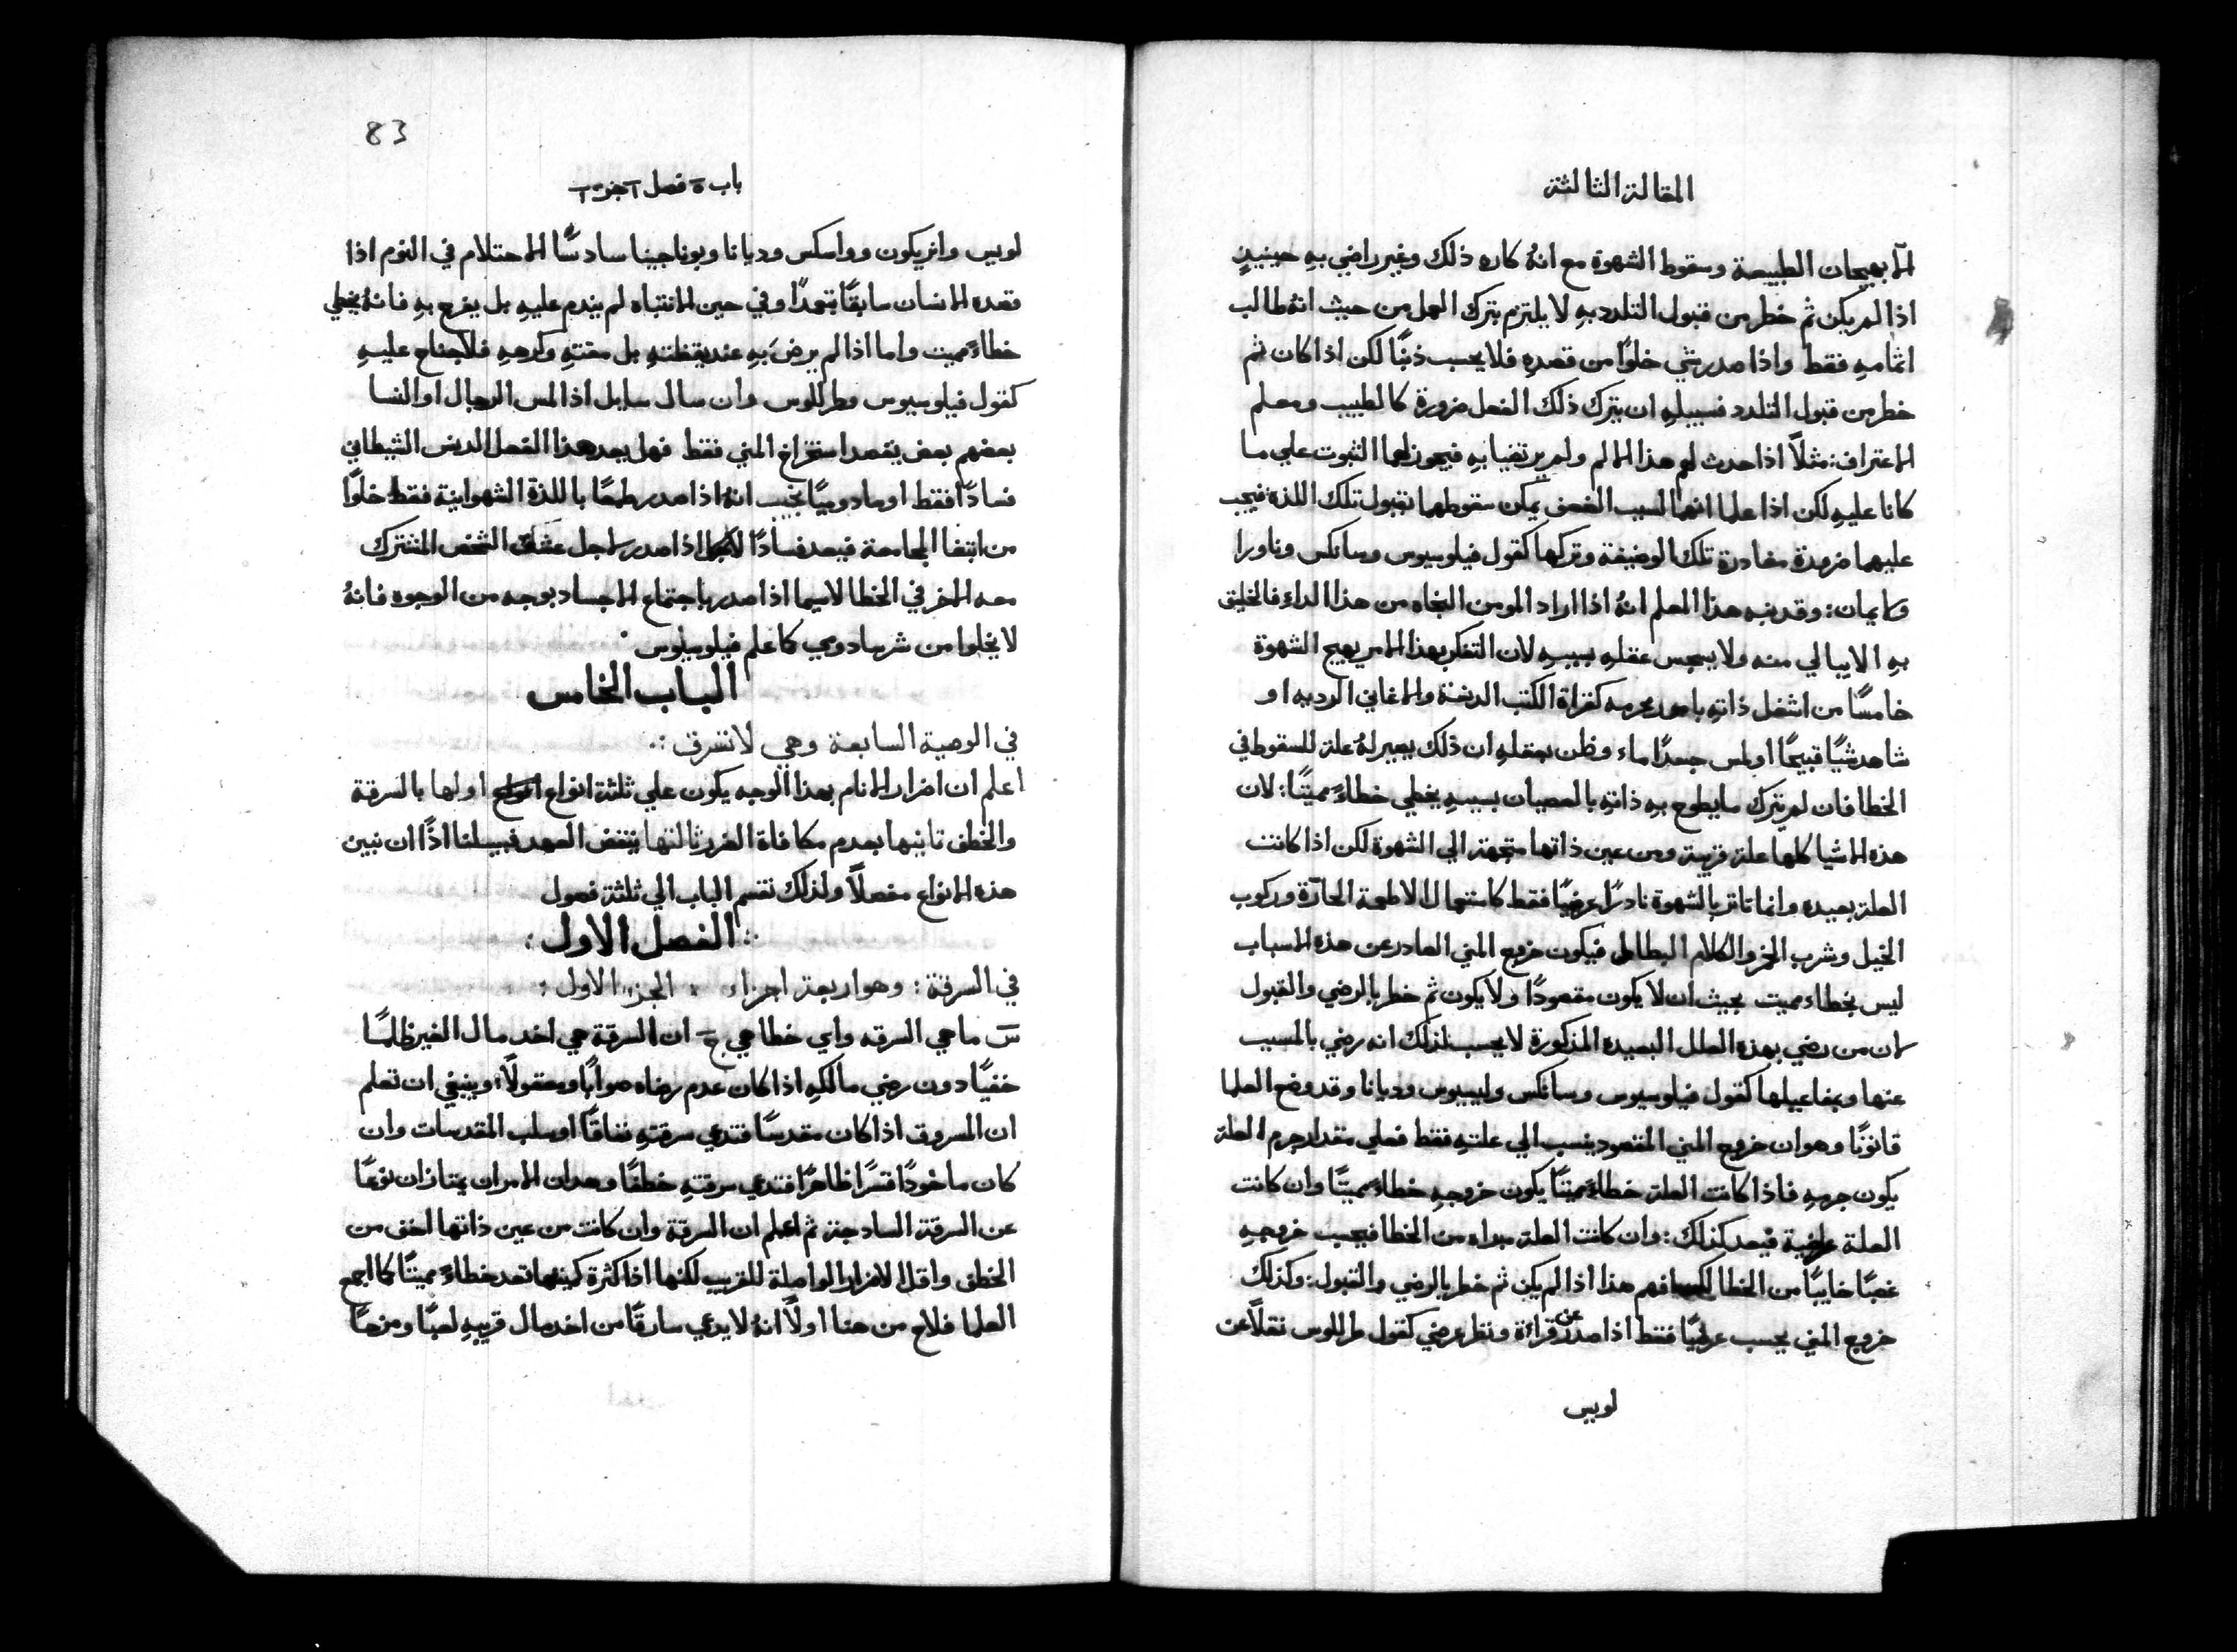 المقالة الثالثة
الا بهيجان الطبيعة وسقوط الشهوة مع انهُ كاره ذلك وغير راضي بهِ حينيذٍ
اذا لم يكن ثم خطر من قبول التلدد بهِ لا يلتزم بترك العمل من حيث انهُ طالب
اتمامهِ فقط واذا صدر شي خلوًا من قصدهِ فلا يحسب ذنبًا لكن اذا كان ثم
خطر من قبول التلدد فسبيلهِ ان يترك ذلك الفعل ضرورة كالطبيب ومعلم
الاعتراف: مثلاً اذا حدث لهم هذا الالم ولم يرتضيا بهِ فيجوز لهما الثبوت علي ما
كانا عليهِ لكن اذا علما انهما لسبب الضعف يمكن سقوطهما بقبول تلك اللذة فيجب
عليهما ضرورة مغادرة تلك الوضيفة وتركها كقول فيلوسيوس وسانكس وناورا
وكايمان: وقد نبه هذا المعلم انهُ اذا اراد المومن النجاه من هذا الداء فالخليق
بهِ الا يبالي منه ولا يهجس عقلهِ بسببهِ لان التفكر بهذا الامر يهيج الشهوة
خامسًا من اشغل ذاتهِ بامور محرمه كقراة الكتب الدنسة والاغاني الرديه او
شاهد شيًا قبيحًا او لمس جسدًا ماء وظن بعقلهِ ان ذلك يصير لهُ علة للسقوط في
الخطا فان لم يترك ما يطوح بهِ ذاتهِ بالعصيان بسببهِ يخطي خطاءً مميتًا: لان
هذه الاشيا كلها علة قريبة ومن عين ذاتها متجهة الي الشهوة لكن اذا كانت
العلة بعيده وانما تاتر بالشهوة نادرًا عرضيًا فقط كاستعمال الاطعمة الحارة وركوب
الخيل وشرب الخمر والكلام البطال فيكون خروج المني الصادر عن هذه الاسباب
ليس بخطاء مميت بحيث ان لا يكون مقصودًا ولا يكون ثم خطر بالرضي والقبول
لان من رضي بهذه العلل البعيده المذكورة لا يحسب لذلك انه رضي بالمسبب
عنها وبمفاعيلها كقول فيلوسيوس وسانكس وليسيوس وديانا وقد وضع العلما
قانونًا وهو ان خروج المني المقصود ينسب الي علتهِ فقط فعلي مقدار جرم العلة
يكون جرمهِ فاذا كانت العلة خطاءً مميتًا يكون خروجهِ خطاءً مميتًا وان كانت
العلة عرضية فيعد كذلك: وان كانت العلة مبراه من الخطا فيحسب خروجهِ
غصبًا خايبًا من الخطا فهم هذا اذا لم يكن ثم خطر بالرضي والقبول: وكذلك
خروج المني يحسب عرضيًا فقط اذا صدر عن قراءة ونظر عرضي كقول طرللوس نقلاً عن
لوبيس
83
باب ٥ فصل ١ جز ١
لوبيس وانريكون وواسكس وديانا وبوناجينا سادسًا الاحتلام في النوم اذا
قصده الانسان سابقًا تعمدًا وفي حين الانتباه لم يندم عليهِ بل يفرح بهِ فانهُ يخطي
خطاءً مميت واما اذا لم يرضَ بهِ عند يقظتهِ بل مقتهِ وكرههِ فلا جناح عليهِ
كقول فيلوسيوس وطرللوس وان سال سايل اذا لمس الرجال او النسا
بعضهم بعض بقصد استفراغ المني فقط فهل يعد هذا الفعل الدنس الشيطاني
فسادًا فقط او صادوميًا يجيب انهُ اذا صدر طمعًا باللذة الشهوانية فقط خلوًا
من ابتغا المجامعة فيعد فسادًا اذا صدر لاجل عشق الشخص المشترك
معه الاخر في الخطا لاسيما اذا صدر باجتماع الاجساد بوجه من الوجوه فانهُ
لا يخلوا من شر صادومي كما علم فيلوسيوس
الباب الخامس
في الوصية السابعة وهي لا تسرق
اعلم ان اضرار الانام بهذا الوجه يكون علي ثلثة انواع اولها بالسرقة
والخطف تانيها بعدم مكافاة الضرر ثالتها بنقض العهد فسبيلنا اذًا ان نبين
هذه الانواع مفصلاً ولذلك نقسم الباب الي ثلثة فصول
الفصل الاول
في السرقة: وهو اربعة اجزاء الجزء الاول
س ما هي السرقه واي خطا هي ج ان السرقة هي اخد مال الغير ظلمًا
خفيًا دون رضي مالكهِ اذا كان عدم رضاه صوابًا ومعقولاً: وينبغي ان تعلم
ان المسروق اذا كان مقدسًا فتدعي سرقتهِ نفاقًا او سلب المقدسات وان
كان ماخودًا قسرًا ظاهرًا فتدعي سرقتهِ خطفًا وهدان الامران يمتازان نوعًا
عن السرقة السادجة ثم اعلم ان السرقة وان كانت من عين ذاتها اخف من
الخطف واقل الاضرار الواصلة للقريب لكنها اذا كثرة كميتها تعد خطاءً مميتًا كما اجمع
العلما فلاح من هنا اولاً انهُ لا يدعي سارقًا من اخد مال قريبهِ لعبًا ومزحًا